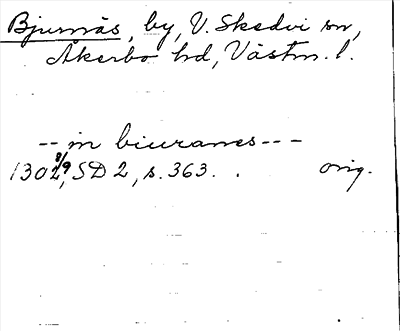 Bjurnäs, by, V. Skedvi sn,
Åkerbo hd, Västm. l.
-- in biuranes ---
1302 8/9, SD 2, s. 363. . orig.